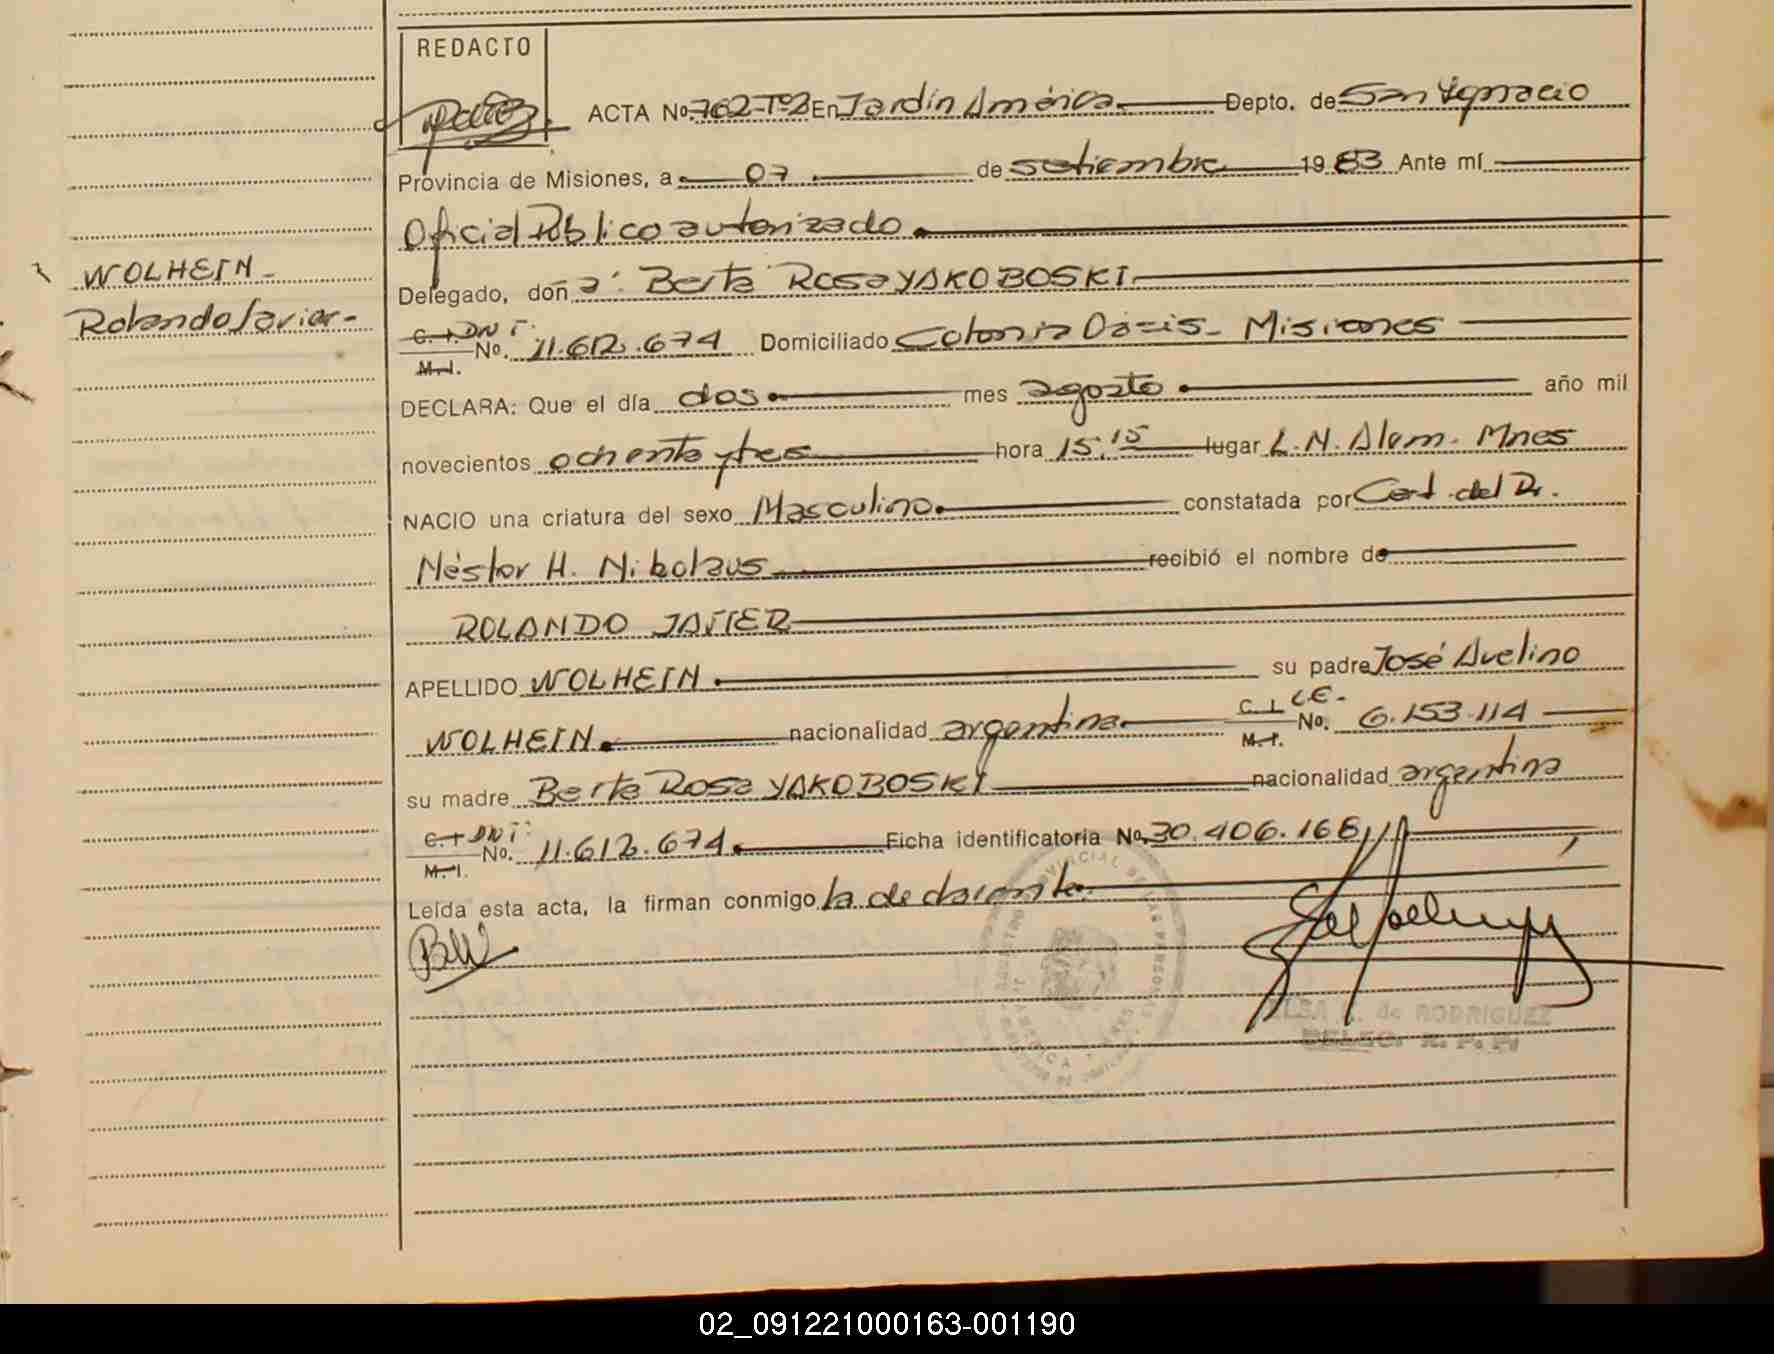 REDACTO
ACTA No. 762-Tº2 En Jardín América Depto. de San Ignacio
Provincia de Misiones, a 07 de setiembre 1983 Ante mí
Oficial Público autorizado
WOLHEIN
Delegado, don a: Berta Rosa YAKOBOSKI
Rolando Javier-
C. I. DNI: M. I. No. 11.612.674 Domiciliado Colonia Oasis - Misiones
DECLARA: Que el día dos mes agosto año mil
novecientos ochenta y tres hora 15:15 lugar L.N. Alem. Mnes
NACIO una criatura del sexo Masculino constatada por Cert. del Dr.
Néstor H. Nikolaus recibió el nombre de
ROLANDO JAVIER
APELLIDO WOLHEIN su padre José Avelino
WOLHEIN nacionalidad argentina C. I. LE- M. I. No. 6.153.114
su madre Berta Rosa YAKOBOSKI nacionalidad argentina
C. I. DNI: M. I. No. 11.612.674 Ficha identificatoria No. 30.406.168
Leída esta acta, la firman conmigo la declarante.
BW
de RODRIGUEZ
DELEG. R. P. P.
02_091221000163-001190